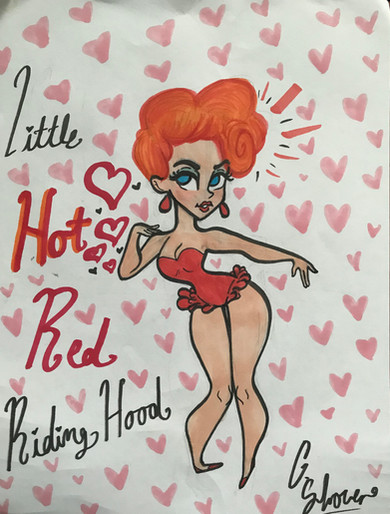 Little
Hot
Red
Riding Hood
G